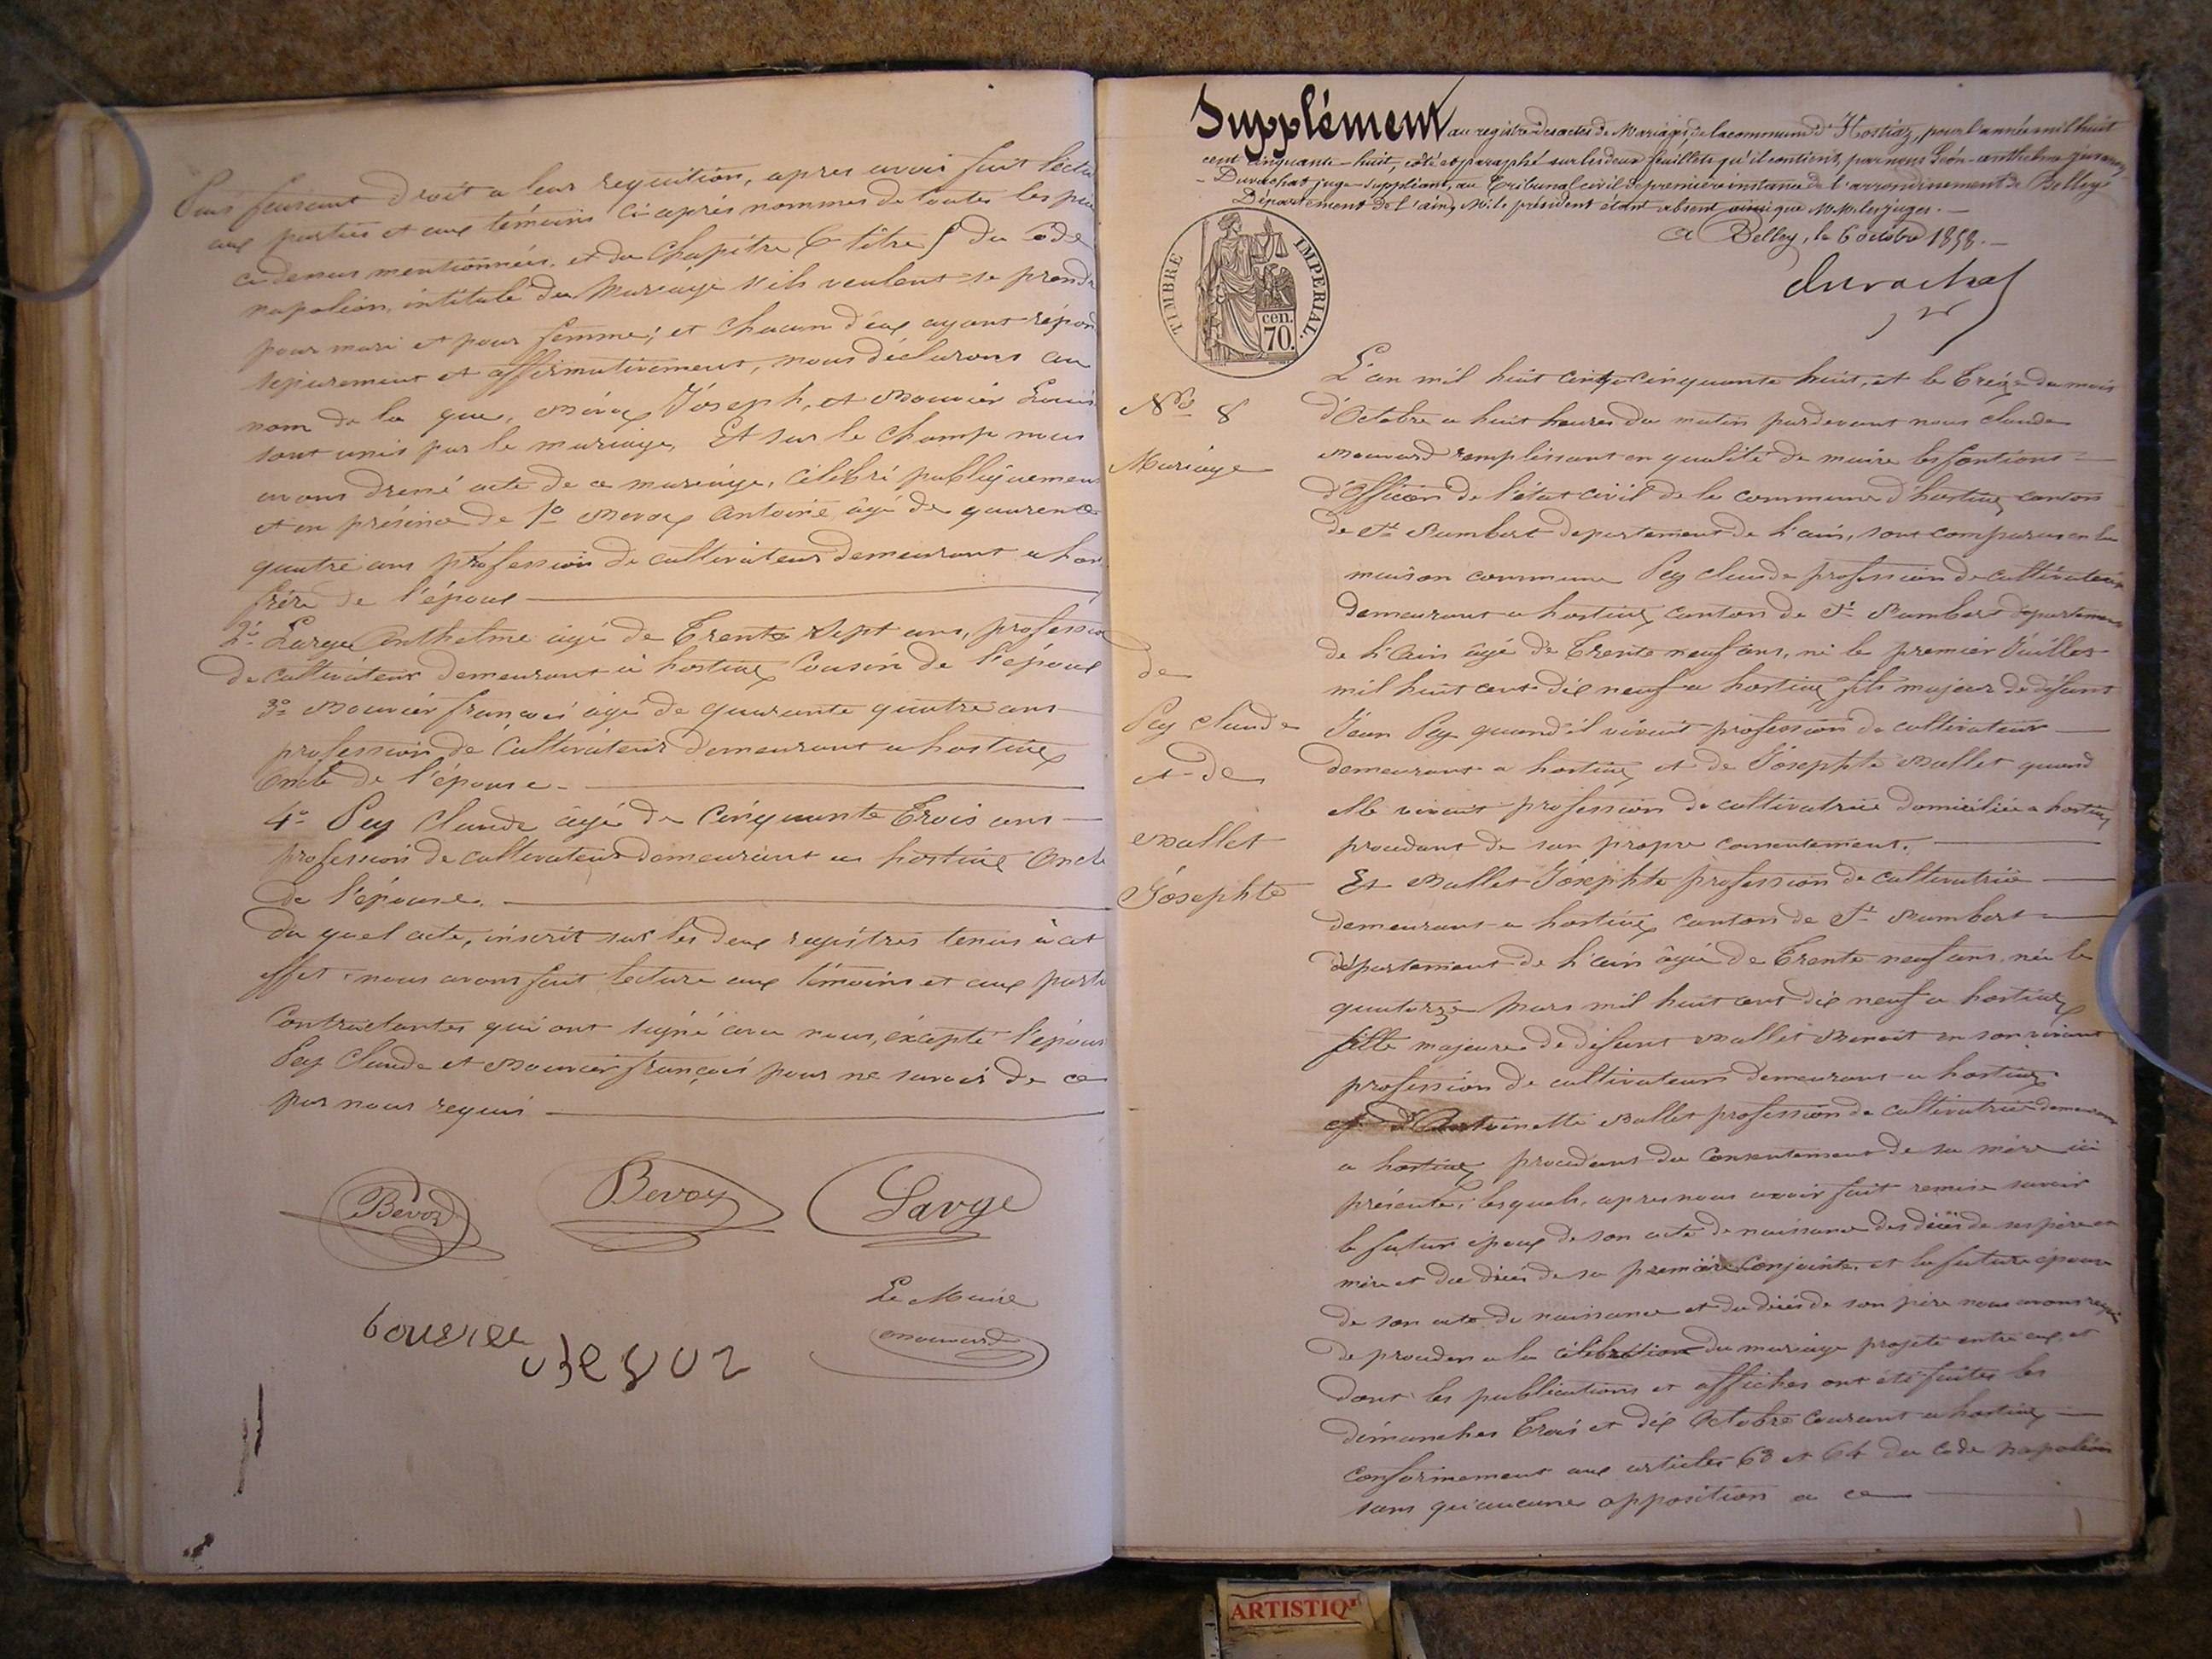 Puis faisant droit a leur requisition, apres avoir fait lectu
aux parties et aux témoins ci-après nommés de toutes les piè
ci dessus mentionnées, et du Chapitre 6 titre 5 du Code
napoléon, intitulé du Mariage s'ils veulent se prendre
pour mari et pour femme; et chacun d'eux ayant répon
séparement et affirmativement, nous déclarons au
nom de la que, Bévoz Joseph, et Bouvier Louis
sont unis par le mariage, Et sur le champ nous
avons dressé acte de ce mariage, célébré publiquemen
et en présence de 1o Bevoz Antoine âgé de quarente
quatre ans profession de cultivateur demeurant a hos
frère de l'époux
2o Large Anthelme âgé de Trente Sept ans, professio
de cultivateur demeurant à hostiaz Cousin de l'époux
3o Bouvier françois âgé de quarante quatre ans
profession de Cultivateur demeurant a hostiaz
Oncle de l'épouse.
4o Pey Claude âgé de Cinquante Trois ans
profession de cultivateur demeurant a hostiaz Oncle
de l'épouse.
du quel acte, inscrit sur les deux registres tenus à cet
effet, nous avons fait lecture aux témoins et aux parti
Contractantes qui ont signé avec nous, excepté l'épous
Pey Claude et Bouvier françois pour ne savoir de ce
par nous requis
Bevoz Bevoz Large
Le Maire
bouvier
Supplément au registre des actes de Mariages de la commune d'Hostiaz, pour l'année mil huit
cent cinquante-huit, coté et paraphé sur les deux feuillets qu'il contient, par nous Léon-anthelme
Duvachat juge-suppléant, au Tribunal civil de première instance de l'arrondissement de Belley
Département de l'ain, M. le président étant absent ainsi que MM. les juges.
A Belley, le 6 octobre 1858.
Duvachat
TIMBRE IMPERIAL.
cen.
70.
No 8
Mariage
de
Pey Claude
et de
Ballet
Josephte
L'an mil huit cent cinquante huit, et le Treize du mois
d'Octobre a huit heures du matin pardevant nous Claude
remplissant en qualité de maire les fontions
d'Officier de l'état civil de la commune d'hostiaz canton
de St Rambert departement de l'ain, sont comparus en la
maison commune Pey Claude profession de cultivateur
demeurant a hostiaz canton de St Rambert departement
de l'Ain âgé de Trente neuf ans, né le premier Juillet
mil huit cent dix neuf a hostiaz fils majeur de défunt
Jean Pey quand il vivait profession de cultivateur
demeurant a hostiaz et de Josephte Ballet quand
elle vivait profession de cultivatrice domiciliée a hostiaz
procedant de son propre consentement.
Et Ballet Josephte profession de cultivatrice
demeurant a hostiaz canton de St Rambert
département de l'ain âgée de Trente neuf ans, née le
quatorze Mars mil huit cent dix neuf a hostiaz
fille majeure de défunt Ballet Benoit en son vivant
profession de cultivateur demeurant a hostiaz
et d'Antoinette Ballet profession de cultivatrice demeurant
a hostiaz procedant du Consentement de sa mère ici
présente, lesquels, apres nous avoir fait remise savoir
le futur époux de son acte de naissance des décès de ses père et
mère et du décès de sa première Conjointe, et la future épouse
de son acte de naissance et du décès de son père nous avons requis
de proceder a la célébration du mariage projeté entre eux, et
dont les publications et affiches ont été faites les
dimanches Trois et dix Octobre Courant a hostiaz
Conformement aux articles 63 et 64 du Code Napoléon
sans qu'aucune opposition a ce
ARTISTIQ